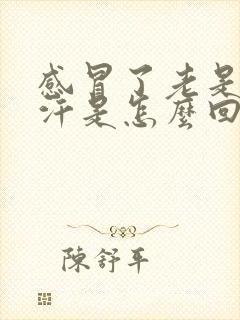 感冒了老是
汗是怎麼回
陳舒平